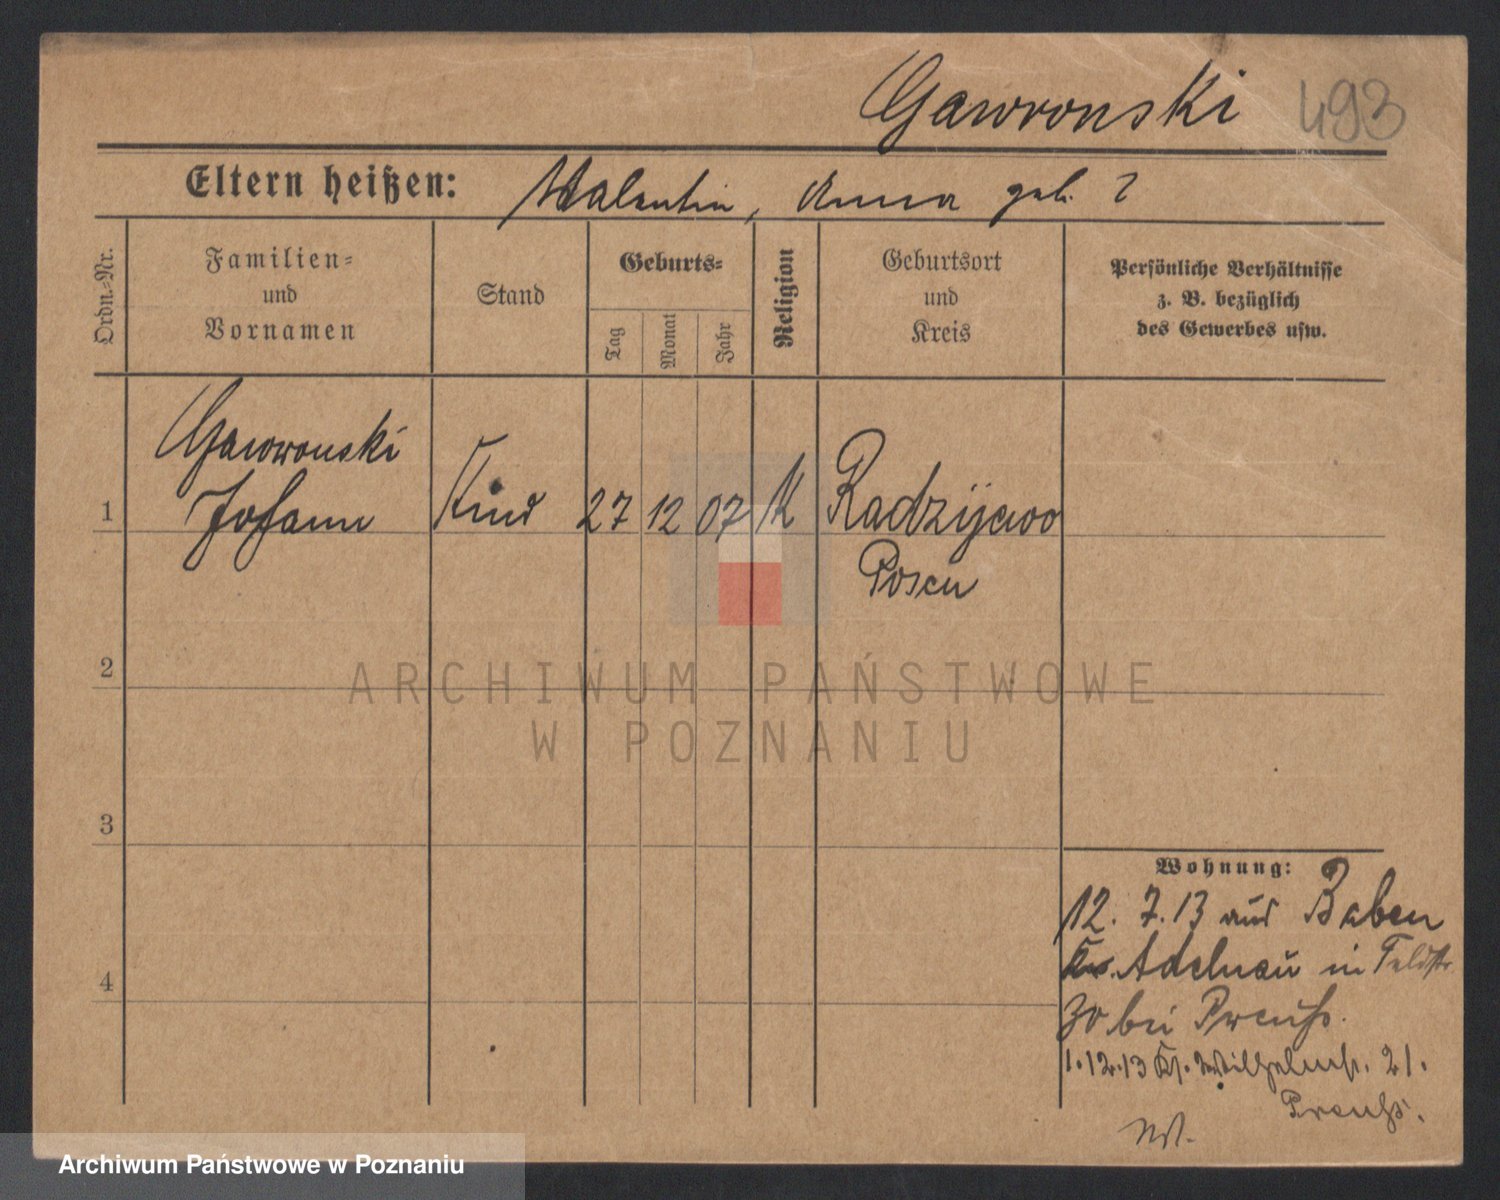 Gawronski 493
Eltern heißen: Valentin, Anna geb. ?
Ordn.=Nr.
Familien=
und
Vornamen
Stand
Geburts=
Tag
Monat
Jahr
Religion
Geburtsort
und
Kreis
Persönliche Verhältnisse
z. B. bezüglich
des Gewerbes usw.
Gawronski
1 Johann Kind 27 12 07 K Radzijewo
Posen
2
3
4
ARCHIWUM PAŃSTWOWE
W POZNANIU
Wohnung:
12. 7. 13 aus Baben
Krs. Adelnau in Feldstr.
30 bei Preuß.
1. 12. 13 Kl. Wilhelmst. 21.
Preuß.
Archiwum Państwowe w Poznaniu